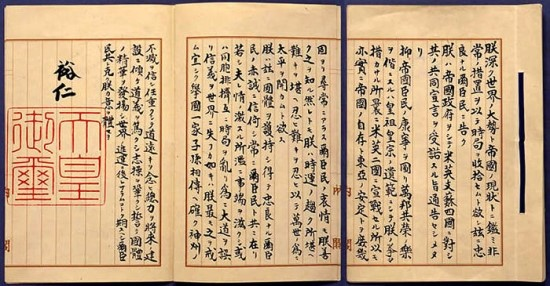 朕深ク世界ノ大勢ト帝國ノ現狀トニ鑑ミ非
常ノ措置ヲ以テ時局ヲ收拾セムト欲シ茲ニ忠
良ナル爾臣民ニ告ク
朕ハ帝國政府ヲシテ米英支蘇四國ニ對シ
其ノ共同宣言ヲ受諾スル旨通告セシメタリ
抑帝國臣民ノ康寧ヲ圖リ萬邦共榮ノ樂
ヲ偕ニスルハ皇祖皇宗ノ遺範ニシテ朕ノ拳々
措カサル所曩ニ米英二國ニ宣戰セル所以モ
亦實ニ帝國ノ自存ト東亞ノ安定トヲ庶幾
内閣
固ヨリ尋常ニアラス爾臣民ノ衷情モ朕善
ク之ヲ知ル然レトモ朕ハ時運ノ趨ク所堪ヘ
難キヲ堪ヘ忍ヒ難キヲ忍ヒ以テ萬世ノ爲ニ
太平ヲ開カムト欲ス
朕ハ茲ニ國體ヲ護持シ得テ忠良ナル爾臣
民ノ赤誠ニ信倚シ常ニ爾臣民ト共ニ在リ
若シ夫レ情ノ激スル所濫ニ事端ヲ滋クシ或
ハ同胞排擠互ニ時局ヲ亂リ爲ニ大道ヲ誤
リ信義ヲ世界ニ失フカ如キハ朕最モ之ヲ戒
ム宜シク擧國一家子孫相傳ヘ確ク神州ノ
内閣
不滅ヲ信シ任重クシテ道遠キヲ念ヒ總力ヲ將來ノ建
設ニ傾ケ道義ヲ篤クシ志操ヲ鞏クシ誓テ國體
ノ精華ヲ發揚シ世界ノ進運ニ後レサラムコトヲ期スヘシ爾臣
民其レ克ク朕カ意ヲ體セヨ
裕仁
天皇
御璽